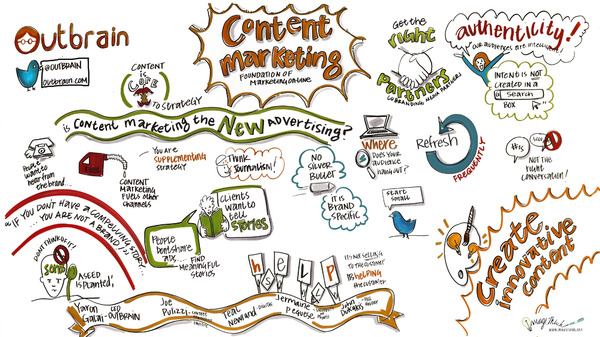 Outbrain
@OUTBRAIN
outbrain.com
CONTENT
is
CORE
to STRATEGY
Content
marketing
FOUNDATION OF
MARKETING ONLINE
Get the
right
Partners
authenticity!
OUR AUDIENCES ARE INTELLIGENT
INTENT IS NOT
CREATED IN A
SEARCH
BOX
is CONTENT MARKETING THE NEW ADVERTISING?
People
want to
hear from
the brand...
CONTENT
MARKETING
FUELS OTHER
CHANNELS
YOU ARE
SUPPLEMENTING
STRATEGY
Think
Journalism!
NO
SILVER
BULLET
it is
BRAND
SPECIFIC
WHERE
DOES YOUR
AUDIENCE
HANG OUT?
Refresh
FREQUENTLY
START
SMALL
NOT THE
right
conversation!
"IF YOU DON'T HAVE A COMPELLING STORY...
... YOU ARE NOT A BRAND!"
Clients
want to
tell
STORIES
PEOPLE
DON'T SHARE
ADS...
FIND
MEANINGFUL
STORIES
SEED
A SEED
IS PLANTED!
help
IT'S NOT SELLING
TO THE CUSTOMER
IT'S HELPING
the customer
Create
innovative
content
Yaron
Galai
CEO
OUTBRAIN
Joe
Pulizzi